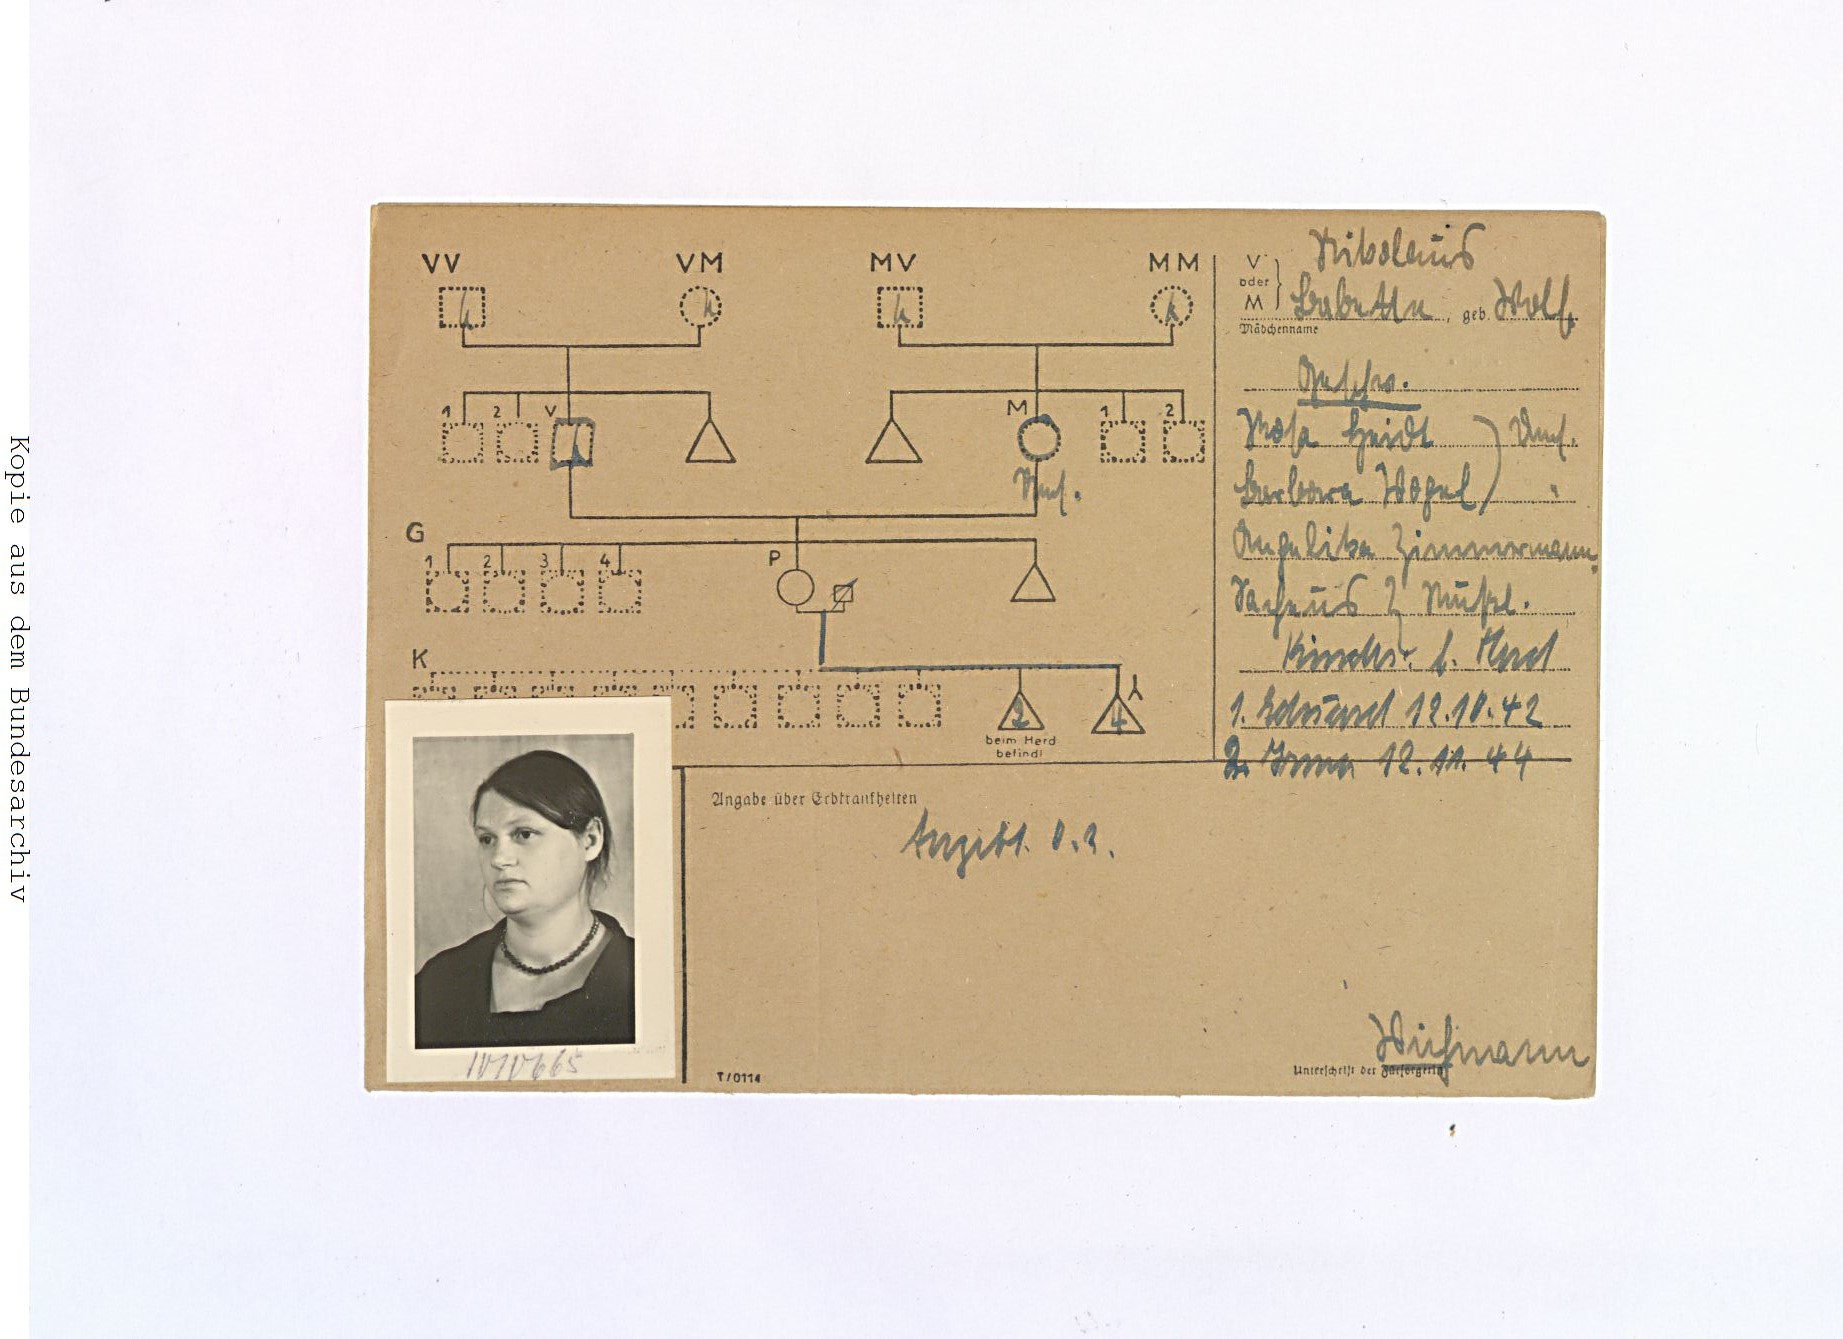 Kopie aus dem Bundesarchiv
VV VM MV MM
1 2 V M 1 2
G
1 2 3 4 P
K
2 4
beim Herd
befindl
V
oder
M
Nikolaus
Babette, geb. Wolf
Mädchenname
Geschw.
Rosa Heidt
Barbara Vogel "
Angelika Zimmermann
Kinder b. Herd
1. Eduard 12.10.42
2. Irma 12.11.44
Angabe über Erbkrankheiten
Angebl. o.
1010665
T/0114
Unterschrift der Fürsorgerin